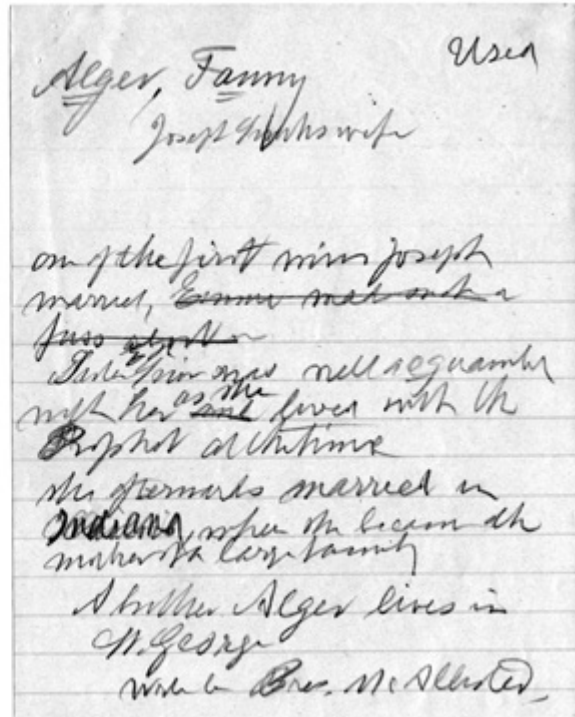 Used
Alger, Fanny
Joseph Smiths wife
one of the first wives Joseph
married, Emma made such a
fuss about
Sister was well acquainted
with her as she and lived with the
Prophet at the time
she afterwards married in
Indiana, where she became the
mother of a large family
A brother Alger lives in
St. George
Bros. McAllister